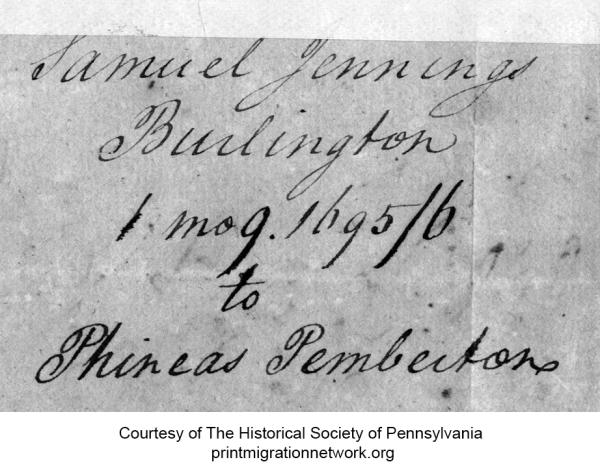 Samuel Jennings
Burlington
1 mo 9. 1695/6
to
Phineas Pemberton
Courtesy of The Historical Society of Pennsylvania
printmigrationnetwork.org